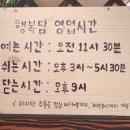 행복담 영업시간
여는시간 : 오전 11시 30분
쉬는시간 : 오후 3시~5시 30분
닫는시간 : 오후 9시